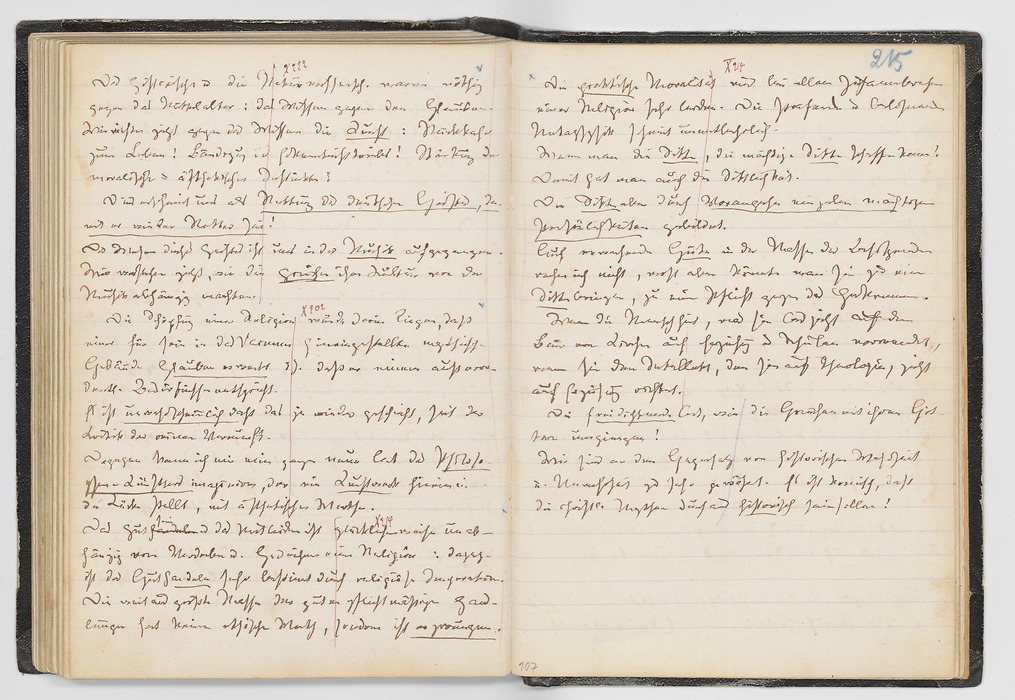 215
Das Historische u die Naturwissensch. waren nöthig
gegen das Mittelalter: das Wissen gegen den Glauben.
Wir richten jetzt gegen das Wissen die Kunst: Rückkehr
zum Leben! Bändigung des Erkenntnißtriebes! Stärkung der
moralischen u ästhetischen Instinkte!
Dies erscheint uns als Rettung des deutschen Geistes, da-
mit er wieder Retter sei!
Das Wesen dieses Geistes ist uns in der Musik aufgegangen.
Wir verstehen jetzt, wie die Griechen ihre Kultur von der
Musik abhängig machten.
Die Schöpfung einer Religion würde darin liegen, daß
einer für sein in das Vacuum hineingestelltes mythisch.
Gebäude Glauben erweckt d.h. daß er einem ausseror-
dentl. Bedürfnisse entspricht.
Es ist unwahrscheinlich daß das je wieder geschieht, seit der
Kritik der reinen Vernunft.
Dagegen kann ich mir eine ganz neue Art des Philoso-
phen-Künstlers imaginiren, der ein Kunstwerk hinein in
die Lücke stellt, mit ästhetischem Werthe.
Das Gutsein u das Mitleiden ist glücklicherweise unab-
hängig vom Verderben u. Gedeihen einer Religion: dageg.
ist das Guthandeln sehr bestimmt durch religiöse Imperative.
Die weitaus größte Masse der guten pflichtmässigen Hand-
lungen hat keinen ethischen Werth, sondern ist erzwungen.
Die praktische Moralität wird bei allem Zusammenbrechen
einer Religion sehr leiden. Die strafende u belohnende
Metaphysik scheint unentbehrlich.
Wenn man die Sitte, die mächtige Sitte schaffen kann!
Damit hat man auch die Sittlichkeit.
Die Sitte aber durch Vorangehen einzelner mächtiger
Persönlichkeiten gebildet.
Auf erwachende Güte in der Masse der Besitzenden
rechne ich nicht, wohl aber könnte man sie zu einer
Sitte bringen, zu einer Pflicht gegen das Herkommen.
Wenn die Menschheit, was sie bis jetzt auf den
Bau von Kirchen auf Erziehung u Schulen verwendet,
wenn sie den Intellekt, den sie auf Theologie, jetzt
auf Erziehung richtet.
Die freidichtende Art, wie die Griechen mit ihren Göt-
tern umgiengen!
Wir sind an den Gegensatz von historischer Wahrheit
u. Unwahrheit zu sehr gewöhnt. Es ist komisch, daß
die christl. Mythen durchaus historisch sein sollen!
107